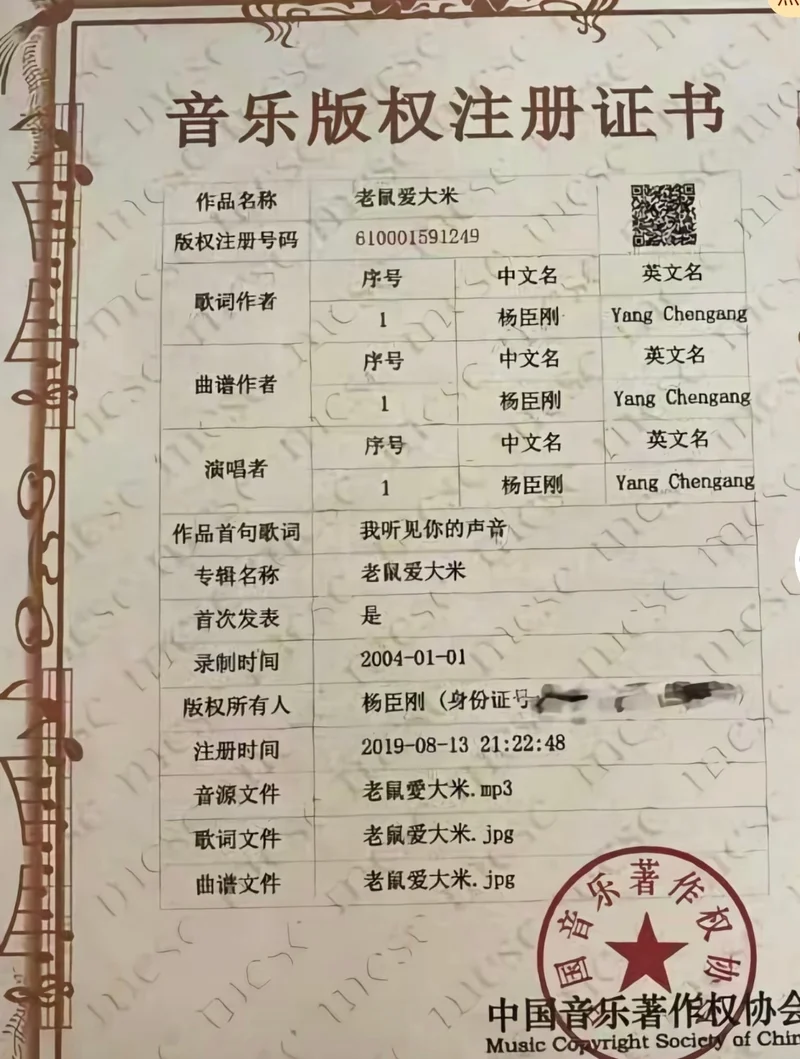 音乐版权注册证书
作品名称 老鼠爱大米
版权注册号码 610001591249
歌词作者 序号 中文名 英文名
1 杨臣刚 Yang Chengang
曲谱作者 序号 中文名 英文名
1 杨臣刚 Yang Chengang
演唱者 序号 中文名 英文名
1 杨臣刚 Yang Chengang
作品首句歌词 我听见你的声音
专辑名称 老鼠爱大米
首次发表 是
录制时间 2004-01-01
版权所有人 杨臣刚（身份证号
注册时间 2019-08-13 21:22:48
音源文件 老鼠愛大米.mp3
歌词文件 老鼠愛大米.jpg
曲谱文件 老鼠愛大米.jpg
国音乐著作权协
中国音乐著作权协会
Music Copyright Society of Chin
mcsc